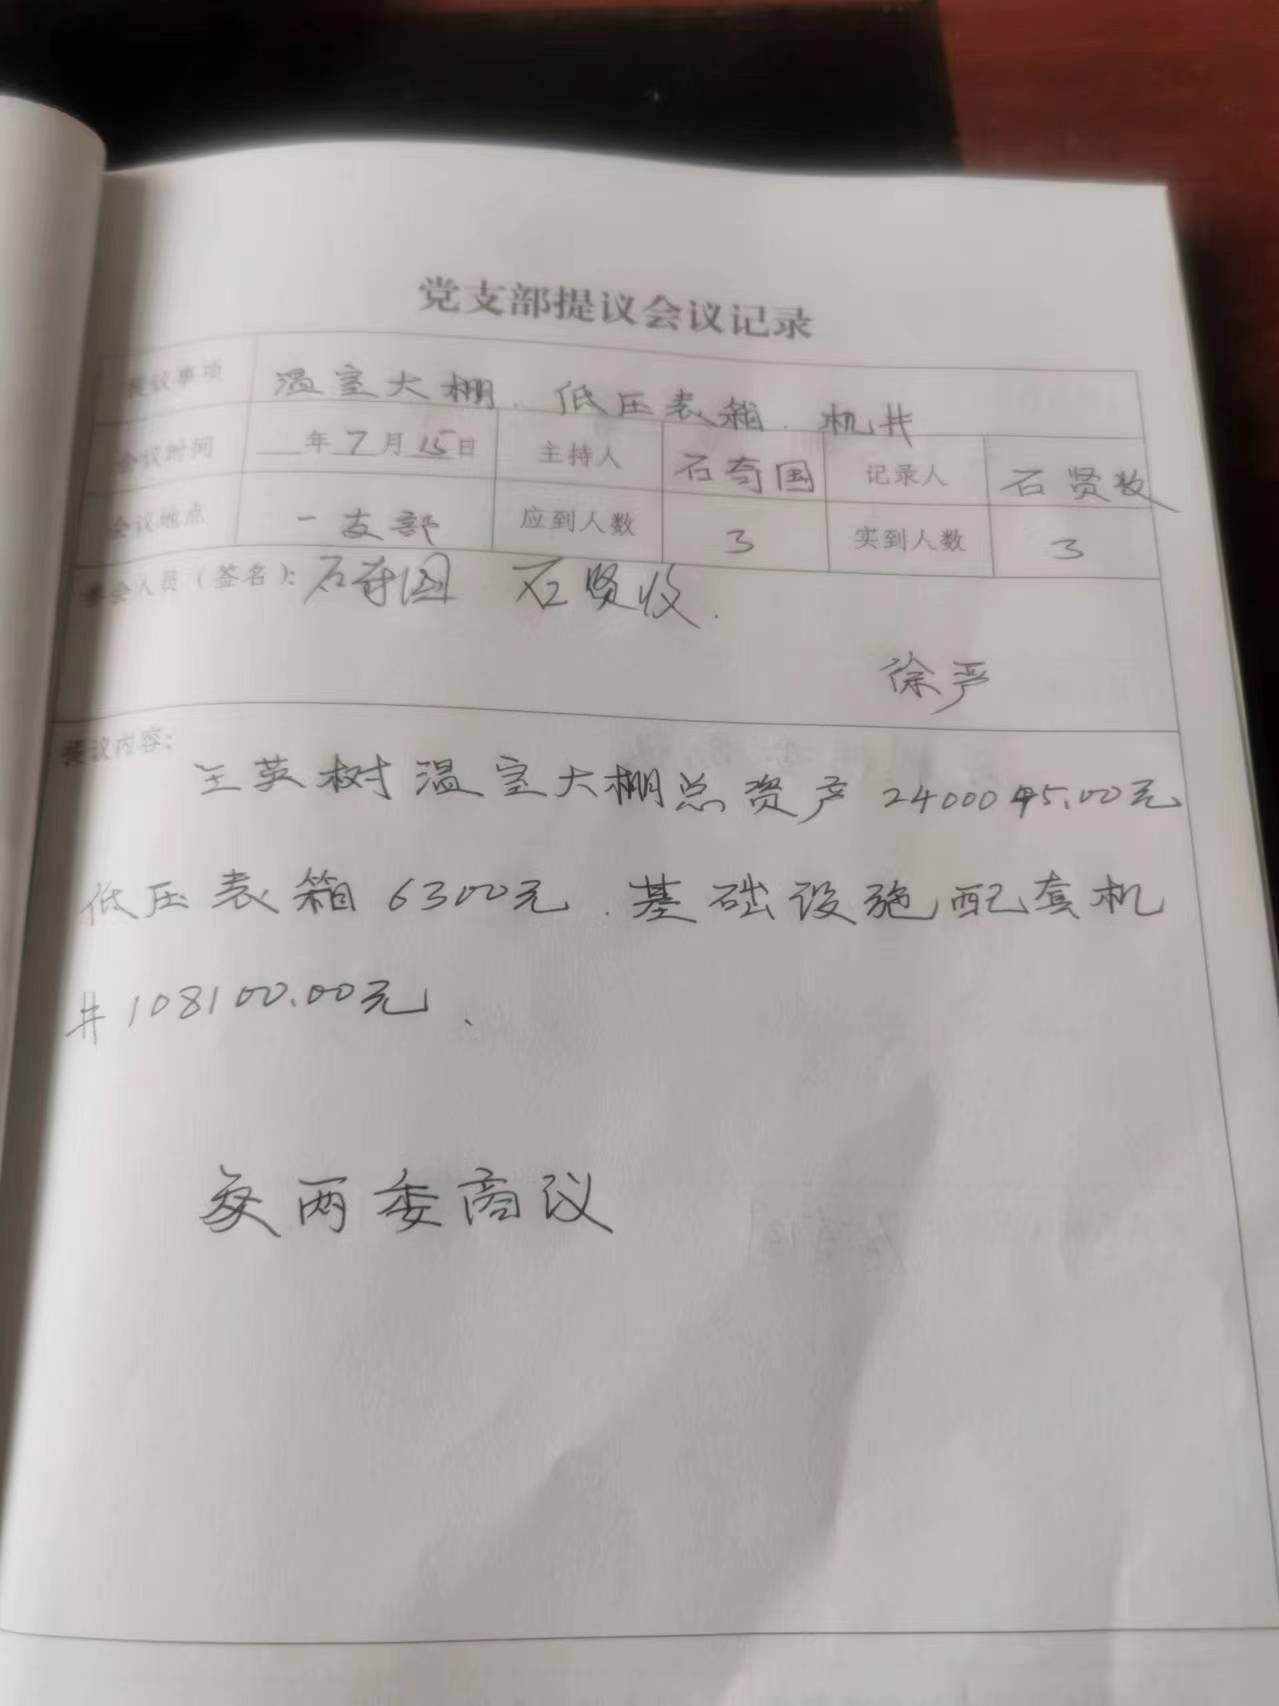 党支部提议会议记录
提议事项 温室大棚、低压表箱、机井
会议时间 年7月15日 主持人 石奇国 记录人 石贤收
会议地点 一支部 应到人数 3 实到人数 3
参会人员(签名): 石奇国 石贤收.
徐严
提议内容:
王英树温室大棚总资产 元
低压表箱6300元、基础设施配套机
井108100.00元、
交两委商议